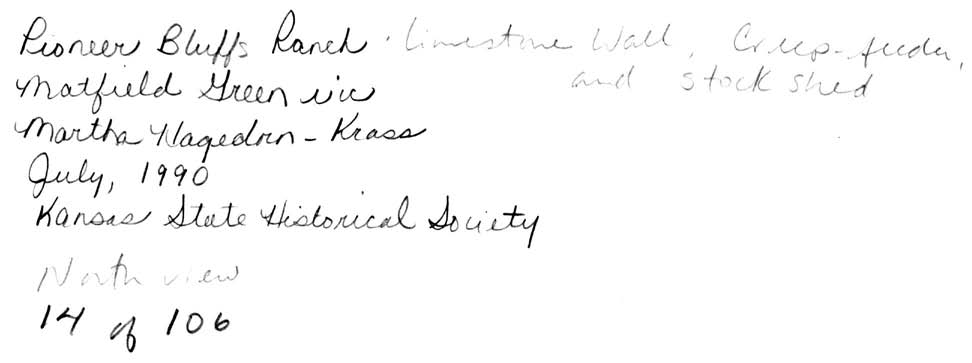 Pioneer Bluffs Ranch · Limestone Wall, Creep-feeder,
and stock shed
Matfield Green vic
Martha Hagedorn-Krass
July, 1990
Kansas State Historical Society
North view
14 of 106